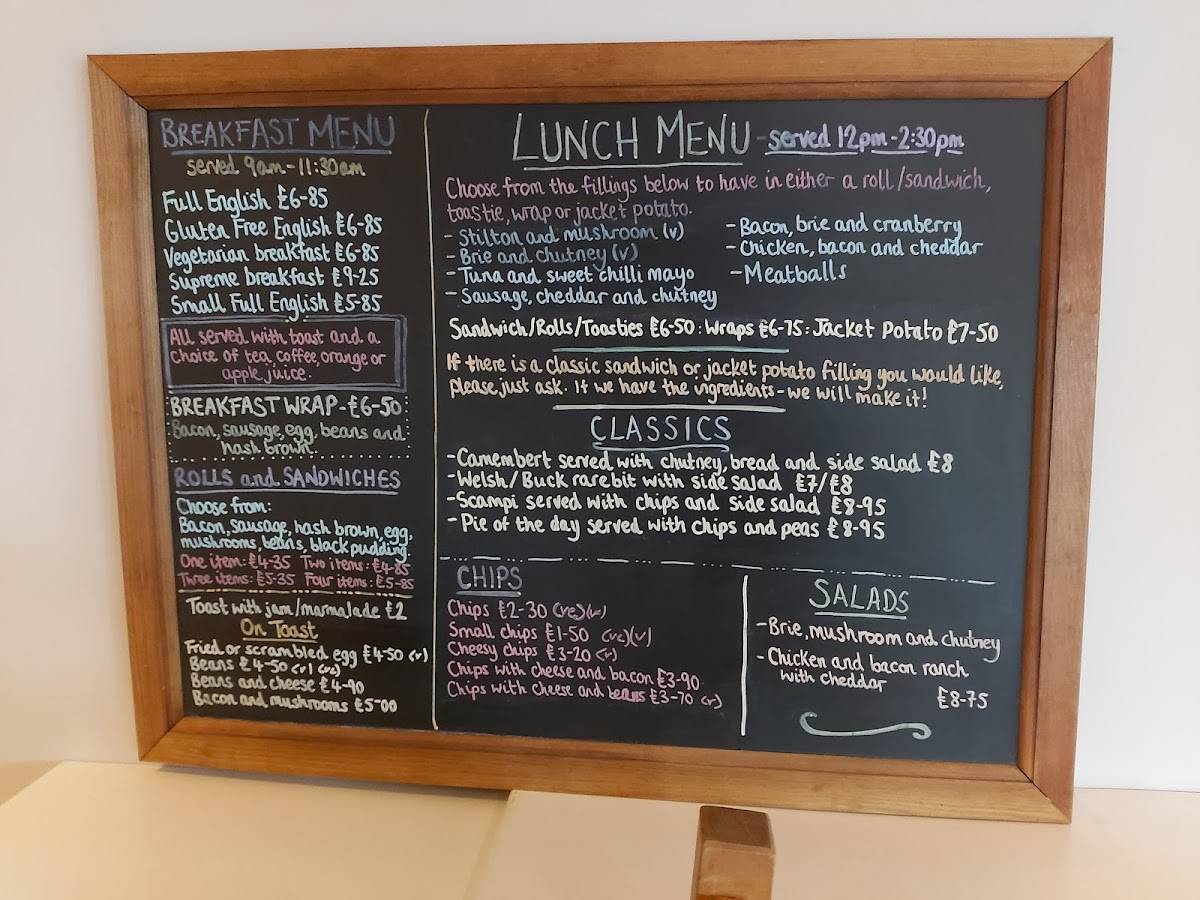 BREAKFAST MENU
served 9am-11:30am
Full English £6-85
Gluten Free English £6-85
Vegetarian breakfast £6-85
Supreme breakfast £9-25
Small Full English £5-85
All served with toast and a
choice of tea, coffee, orange or
apple juice.
BREAKFAST WRAP-£6-50
Bacon, sausage, egg, beans and
hash brown.
ROLLS and SANDWICHES
Choose from:
Bacon, sausage, hash brown, egg,
mushrooms, beans, black pudding.
One item: £4-35 Two items: £4-85
Three items: £5-35 Four items: £5-85
Toast with jam/marmalade £2
On Toast
Fried or scrambled egg £4-50 (v)
Beans £4-50 (v) (ve)
Beans and cheese £4-90
Bacon and mushrooms £5-00
LUNCH MENU - served 12pm-2:30pm
Choose from the fillings below to have in either a roll/sandwich,
toastie, wrap or jacket potato.
- Stilton and mushroom (v)
- Brie and chutney (v)
- Tuna and sweet chilli mayo
- Sausage, cheddar and chutney
- Bacon, brie and cranberry
- Chicken, bacon and cheddar
- Meatballs
Sandwich/Rolls/Toasties £6-50 : Wraps £6-75 : Jacket Potato £7-50
If there is a classic sandwich or jacket potato filling you would like,
please just ask. If we have the ingredients - we will make it!
CLASSICS
- Camembert served with chutney, bread and side salad £8
- Welsh/Buck rarebit with side salad £7/£8
- Scampi served with chips and side salad £8-95
- Pie of the day served with chips and peas £8-95
CHIPS
Chips £2-30 (ve)(v)
Small chips £1-50 (ve)(v)
Cheesy chips £3-20 (v)
Chips with cheese and bacon £3-90
Chips with cheese and beans £3-70 (v)
SALADS
- Brie, mushroom and chutney
- Chicken and bacon ranch
with cheddar
£8-75